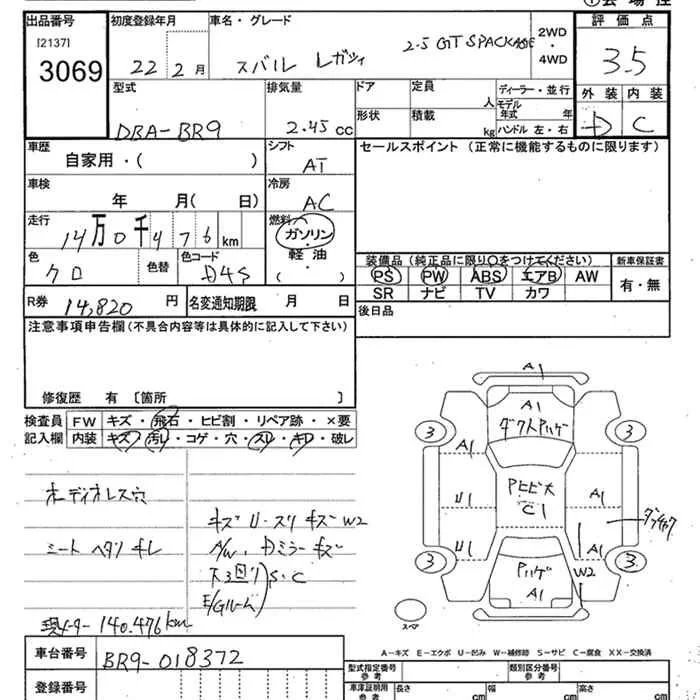 出品番号
[2137]
3069
初度登録年月
22 2月
車名・グレード
スバル レガシィ 2.5 GT SPACKAGE
2WD
・
4WD
評価点
3.5
外装 内装
D C
型式
DBA-BR9
排気量
2.45 cc
ドア
定員
人
形状
積載
kg
ディーラー・並行
モデル
年式 年
ハンドル 左・右
車歴
自家用・( )
シフト
AT
セールスポイント(正常に機能するものに限ります)
車検
年 月( 日)
冷房
AC
走行
14万0千476km
燃料
ガソリン
軽油
( )
色
クロ
色替
色コード
D4S
装備品(純正品に限り○をつけてください)
PS PW ABS エアB AW
SR ナビ TV カワ
新車保証書
有・無
R券 14,820円
名変通知期限 月 日
後日品
注意事項申告欄(不具合内容等は具体的に記入して下さい)
修復歴 有 〔箇所 〕
検査員
記入欄
FW キズ・飛石・ヒビ割・リペア跡・×要
内装 キズ・汚レ・コゲ・穴・スレ・キレ・破レ
オーディオレス穴
シート ヘタリ キレ
キズ U・スリ キズ W2
A/W、Dミラーキズ
下廻り
E/Gルーム
S・C
現メーター 140.476km
A1
A1
ダクトハゲ
3
3
A1
U1
U1
アヒビ大
C1
A1
A1
W2
3
3
ハゲ
A1
スペア
A-キズ E-エクボ U-凹み W-補修跡 S-サビ C-腐食 XX-交換済
車台番号
BR9-018372
登録番号
型式指定番号
参考
類別区分番号
参考
車庫証明用
参考
長さ cm
幅 cm
高さ cm